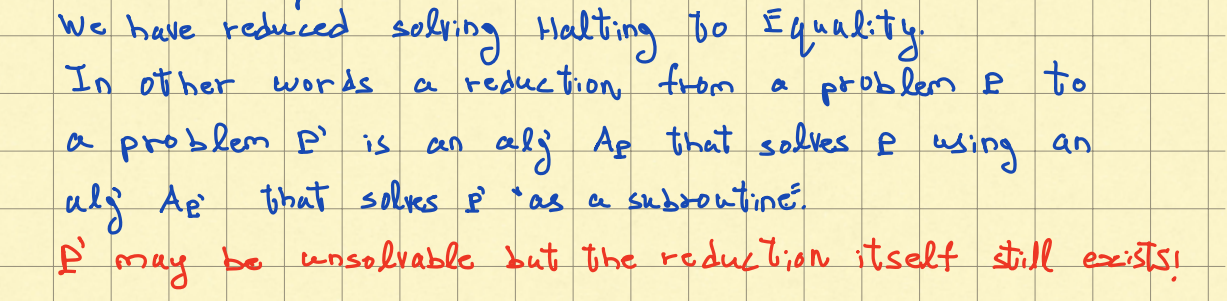 We have reduced solving Halting to Equality.
In other words a reduction from a problem P to
a problem P' is an alg' A_P that solves P using an
alg' A_P' that solves P' "as a subroutine".
P' may be unsolvable but the reduction itself still exists!